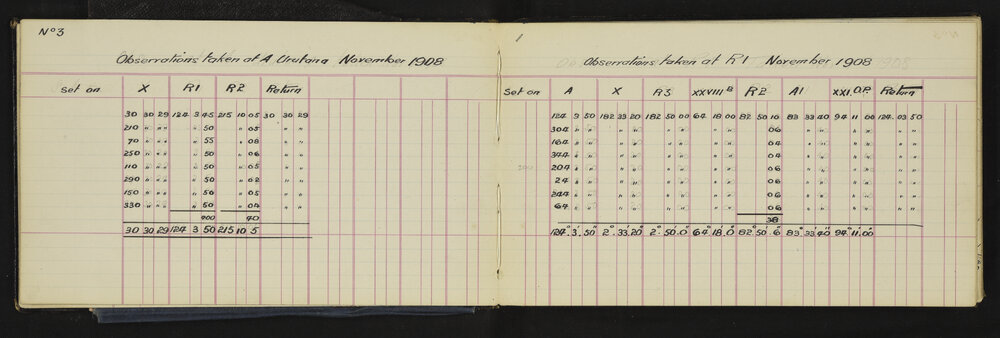 Nº3
Observations taken at A Urutana November 1908
Set on X R1 R2 Return
30 30 29 124 3 45 215 10 05 30 30 29
210 " " " " 50 " " 05 " " "
70 " " " " 55 " " 08 " " "
250 " " " " 50 " " 06 " " "
110 " " " " 50 " " 05 " " "
290 " " " " 50 " " 02 " " "
150 " " " " 50 " " 05 " " "
330 " " " " 50 " " 04 " " "
400 40
30 30 29 124 3 50 215 10 5
1
Observations taken at R1 November 1908
Set on A X R3 XXVIII B R2 A1 XXI. O.P. Return
124 3 50 182 33 20 182 50 00 64 18 00 82 50 10 83 33 40 94 11 00 124 03 50
304 " " " " " " " " " 06 " " " " " "
164 " " " " " " " " " 04 " " " " " "
344 " " " " " " " " " 04 " " " " " "
204 " " " " " " " " " 06 " " " " " "
24 " " " " " " " " " 06 " " " " " "
244 " " " " " " " " " 06 " " " " " "
64 " " " " " " " " " 06 " " " " " "
38
124° 3' 50" 2° 33' 20" 2° 50' 0" 64° 18' 0" 82° 50' 6" 83° 33' 40" 94° 11' 00"